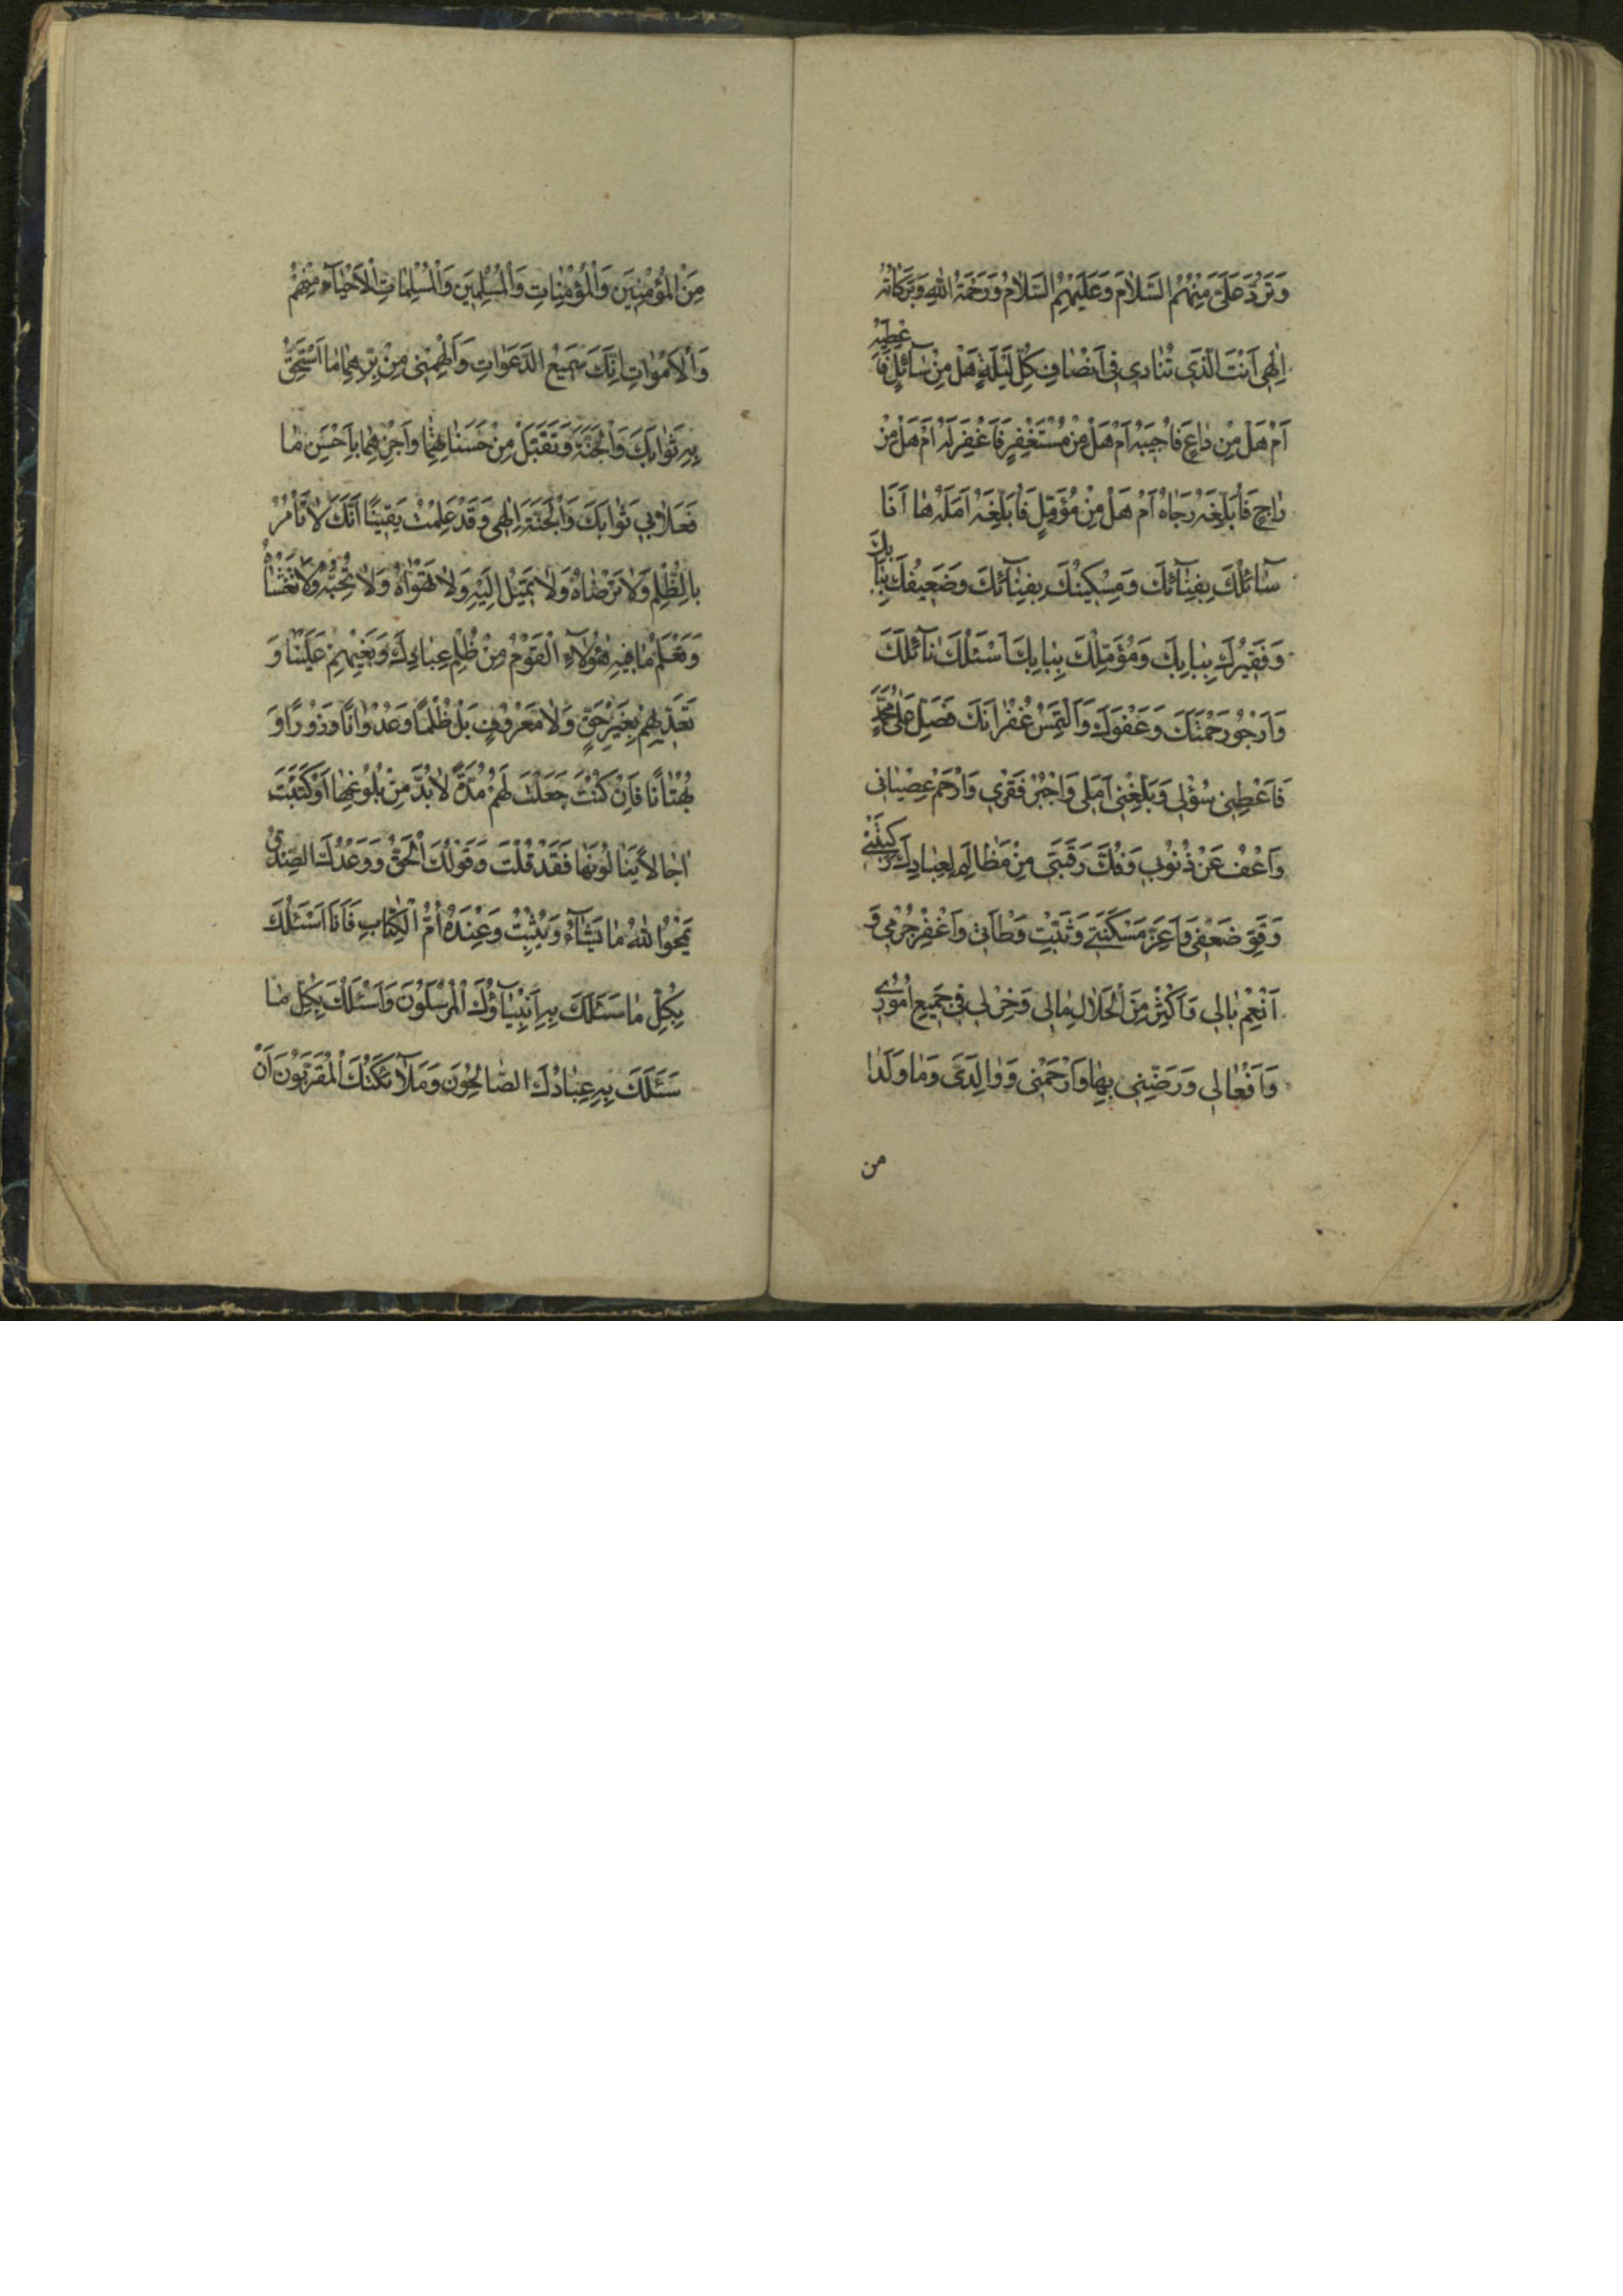 وَتَرُدَّ عَلَیَّ مِنْهُمُ السَّلَامَ وَعَلَيْهِمُ السَّلَامُ وَرَحْمَةُ اللّٰهِ وَبَرَكَاتُهُ
اِلٰهِی اَنْتَ الَّذِی تُنَادِی فِی اَنْصَافِ كُلِّ لَيْلَةٍ هَلْ مِنْ سَآئِلٍ فَاُعْطِيَهُ
اَمْ هَلْ مِنْ دَاعٍ فَاُجِيبَهُ اَمْ هَلْ مِنْ مُسْتَغْفِرٍ فَاَغْفِرَ لَهُ اَمْ هَلْ مِنْ
رَاجٍ فَاُبَلِّغَهُ رَجَاهُ اَمْ هَلْ مِنْ مُؤَمِّلٍ فَاُبَلِّغَهُ اَمَلَهُ هَا اَنَا
سَآئِلُكَ بِفِنَآئِكَ وَمِسْكِينُكَ بِفِنَآئِكَ وَضَعِيفُكَ بِبَابِكَ
وَفَقِيرُكَ بِبَابِكَ وَمُؤَمِّلُكَ بِبَابِكَ اَسْئَلُكَ نَآئِلَكَ
وَاَرْجُو رَحْمَتَكَ وَعَفْوَكَ وَاَلْتَمِسُ غُفْرَانَكَ فَصَلِّ عَلٰی مُحَمَّدٍ
فَاَعْطِنِی سُؤْلِی وَبَلِّغْنِی اَمَلِی وَاجْبُرْ فَقْرِی وَارْحَمْ عِصْيَانِی
وَاعْفُ عَنْ ذُنُوبِی وَفُكَّ رَقَبَتِی مِنْ مَظَالِمَ لِعِبَادِكَ رَكِبَتْنِی
وَقَوِّ ضَعْفِی وَاَعِزَّ مَسْكَنَتِی وَثَبِّتْ وَطْأَتِی وَاغْفِرْ جُرْمِی وَ
اَنْعِمْ بَالِی وَاَكْثِرْ مِنَ الْحَلَالِ مَالِی وَخِرْ لِی فِی جَمِيعِ اُمُورِی
وَاَفْعَالِی وَرَضِّنِی بِهَا وَارْحَمْنِی وَوَالِدَیَّ وَمَا وَلَدَا
من
مِنَ الْمُؤْمِنِينَ وَالْمُؤْمِنَاتِ وَالْمُسْلِمِينَ وَالْمُسْلِمَاتِ الْاَحْيَآءِ مِنْهُمْ
وَالْاَمْوَاتِ اِنَّكَ سَمِيعُ الدَّعَوَاتِ وَاَلْهِمْنِی مِنْ بِرِّهِمَا مَا اَسْتَحِقُّ
بِهِ ثَوَابَكَ وَالْجَنَّةَ وَتَقَبَّلْ مِنْ حَسَنَاتِهِمَا وَاَجْزِهِمَا بِاَحْسَنِ مَا
فَعَلَا بِی ثَوَابَكَ وَالْجَنَّةَ اِلٰهِی وَقَدْ عَلِمْتُ يَقِينًا اَنَّكَ لَا تَأْمُرُ
بِالظُّلْمِ وَلَا تَرْضَاهُ وَلَا تَمِيلُ اِلَيْهِ وَلَا تَهْوَاهُ وَلَا تُحِبُّهُ وَلَا تَغْشَاهُ
وَتَعْلَمُ مَا فِيهِ هٰؤُلَآءِ الْقَوْمُ مِنْ ظُلْمِ عِبَادِكَ وَبَغْيِهِمْ عَلَيْنَا وَ
تَعَدِّيهِمْ بِغَيْرِ حَقٍّ وَلَا مَعْرُوفٍ بَلْ ظُلْمًا وَعُدْوَانًا وَزُورًا وَ
بُهْتَانًا فَاِنْ كُنْتَ جَعَلْتَ لَهُمْ مُدَّةً لَا بُدَّ مِنْ بُلُوغِهَا اَوْ كَتَبْتَ
اٰجَالًا يَنَالُونَهَا فَقَدْ قُلْتَ وَقَوْلُكَ الْحَقُّ وَوَعْدُكَ الصِّدْقُ
يَمْحُو اللّٰهُ مَا يَشَآءُ وَيُثْبِتُ وَعِنْدَهُ اُمُّ الْكِتَابِ فَاَنَا اَسْئَلُكَ
بِكُلِّ مَا سَئَلَكَ بِهِ اَنْبِيَآؤُكَ الْمُرْسَلُونَ وَاَسْئَلُكَ بِكُلِّ مَا
سَئَلَكَ بِهِ عِبَادُكَ الصَّالِحُونَ وَمَلَآئِكَتُكَ الْمُقَرَّبُونَ اَنْ